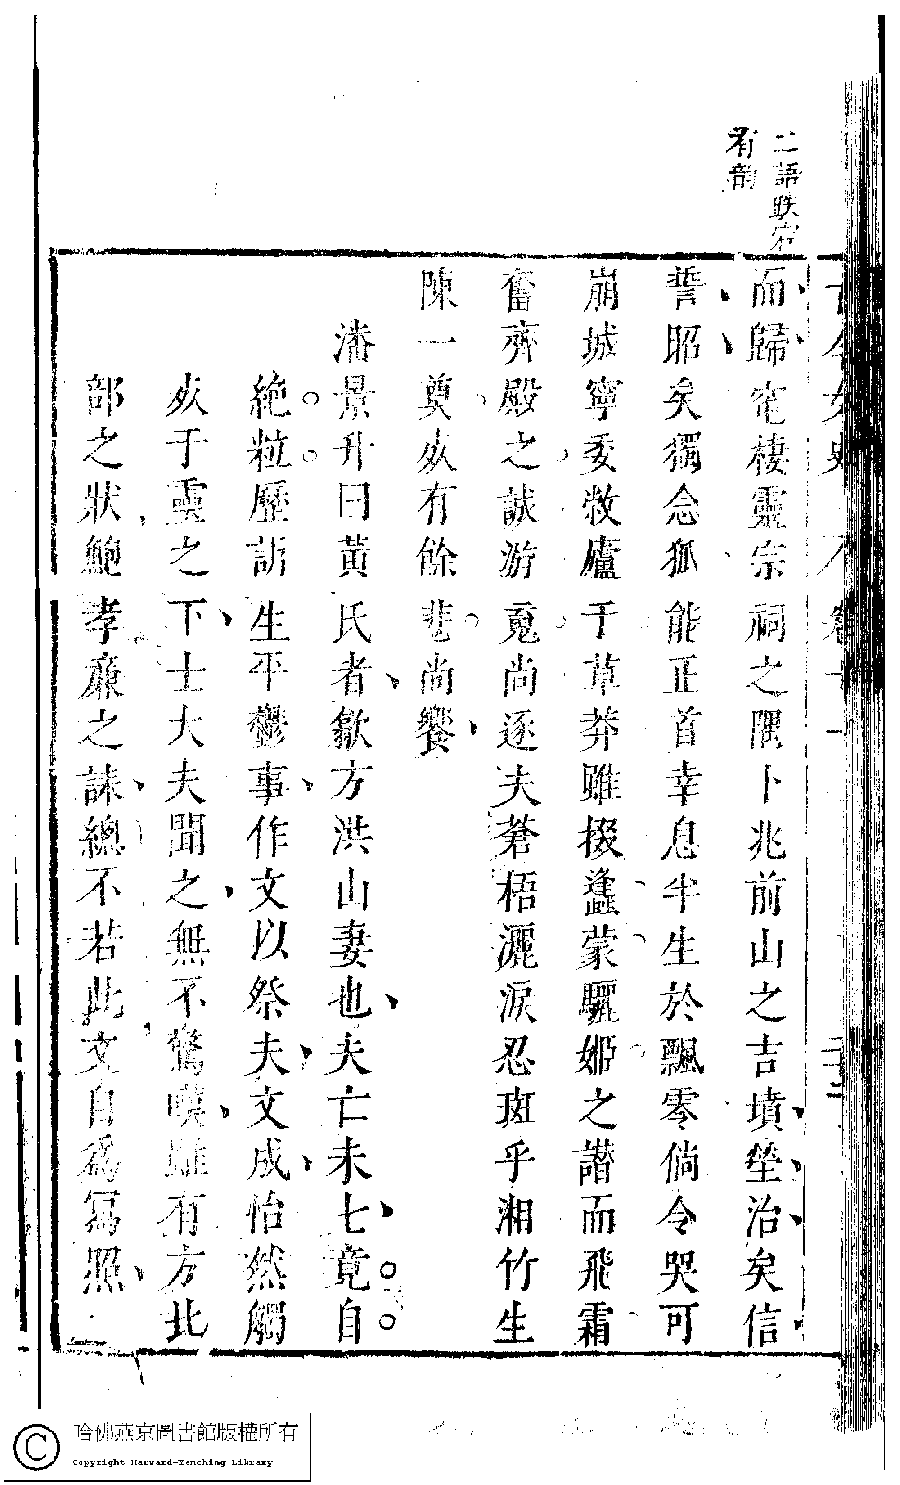 二語跌宕
有韵
而歸窀棲靈宗祠之隅卜兆前山之吉墳塋治矣信
誓昭矣獨念狐能正首幸息半生於飄零倘令哭可
崩城寧委敝廬于草莽雖掇蠭蒙驪姬之譖而飛霜
奮齊殿之誠游䰟尚逐夫蒼梧灑淚忍斑乎湘竹生
陳一奠㱙有餘悲尚饗
潘景升曰黃氏者歙方洪山妻也夫亡未七竟自
絶粒歷訴生平鬱事作文以祭夫文成怡然觸
㱙于靈之下士大夫聞之無不驚嘆雖有方北
部之狀鮑孝廉之誄總不若此文自爲寫照
哈佛燕京圖書館版權所有
Copyright Harvard-Yenching Library